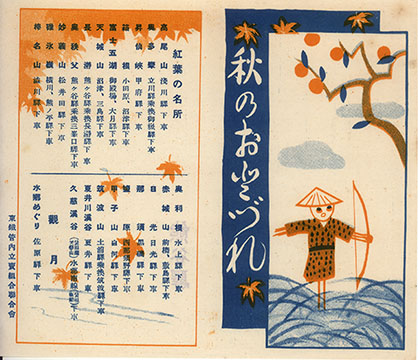 秋のおとづれ
紅葉の名所
高尾山 淺川驛下車
奥多摩 立川驛乘換御嶽驛下車
昇仙峽 甲府驛下車
箱根 小田原、沼津驛下車
富士五湖 御殿場、大月驛下車
天城山 沼津、三島驛下車
長瀞 熊ヶ谷驛乘換長瀞驛下車
奥秩父 熊ヶ谷驛乘換三峯口驛下車
妙義山 松井田驛下車
碓氷嶺 横川、熊ノ平驛下車
榛名山 澁川驛下車
奥利根 水上驛下車
赤城山 前橋、
日光 日光驛下車
那須 黒磯驛下車
鹽原 西那須野驛下車
甲子 白河驛下車
筑波山 土浦驛乘換筑波驛下車
夏井川溪谷 夏井驛下車
久慈溪谷
觀月
水郷めぐり 佐原驛下車
東鐵管内立賣組合聯合會